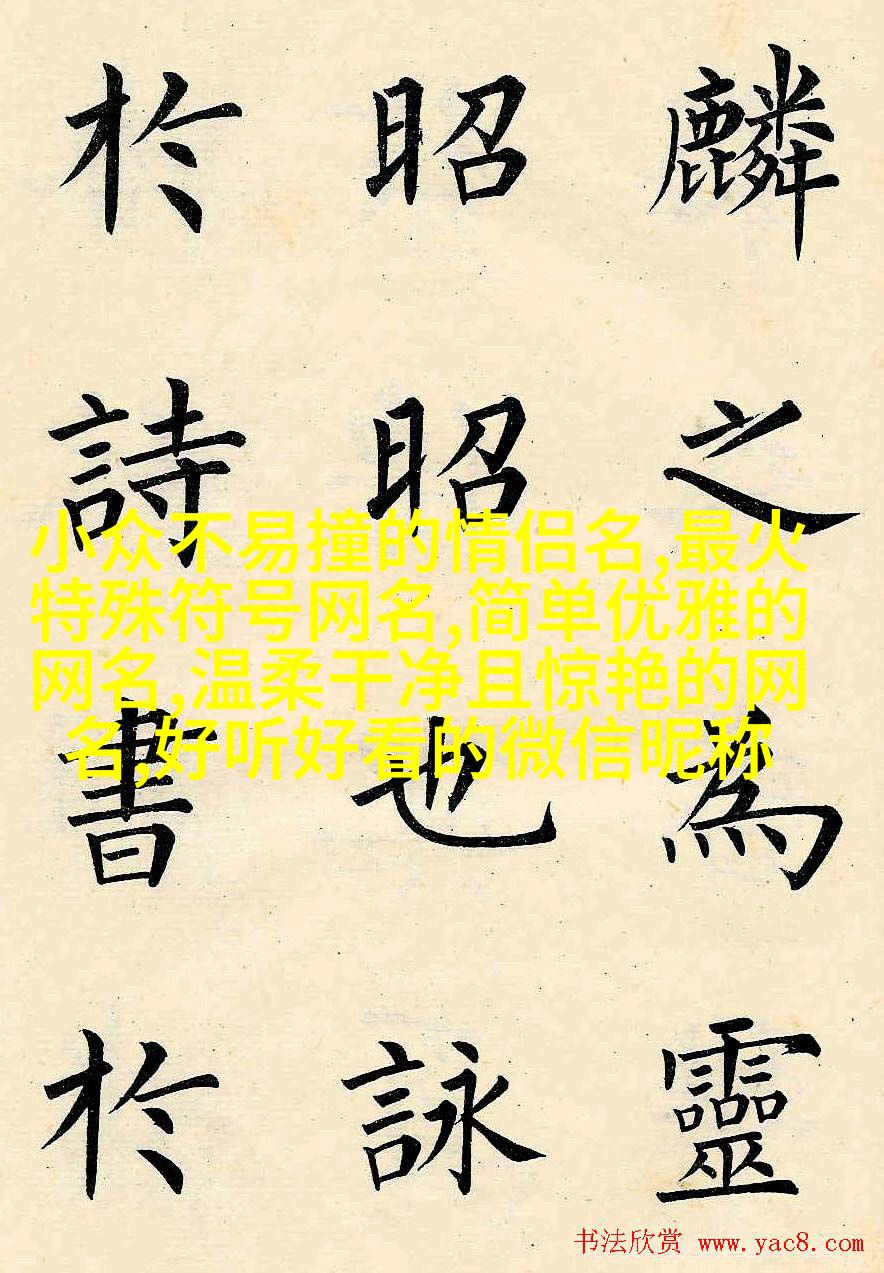 麟之為靈
昭昭也詠
於詩書於
小众不易撞的情侣名,最火
特殊符号网名,简单优雅的
网名,温柔干净且惊艳的网
名,好听好看的微信昵称
书法欣赏 www.yac8.com